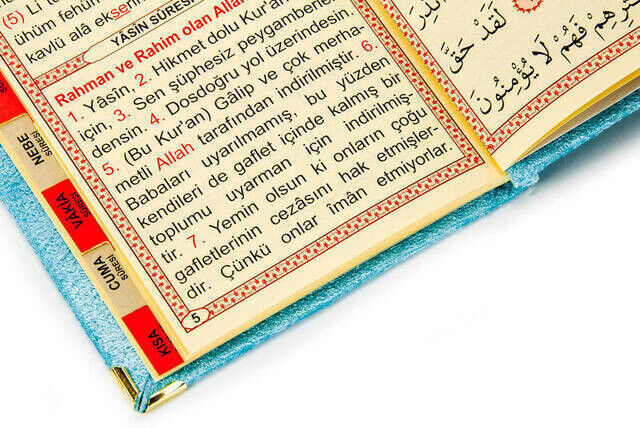 (5) Li
ühüm fehüm
kavlü alâ ekseri
YÂSİN SÛRESİ
Rahman ve Rahim olan Allah
1. Yâsîn, 2. Hikmet dolu Kur'an
için, 3. Sen şüphesiz peygamberler
densin. 4. Dosdoğru yol üzerindesin.
5. (Bu Kur'an) Gâlip ve çok merha-
metli Allah tarafından indirilmiştir. 6.
Babaları uyarılmamış, bu yüzden
kendileri de gaflet içinde kalmış bir
toplumu uyarman için indirilmiş-
tir. 7. Yemin olsun ki onların çoğu
gafletlerinin cezâsını hak etmişler-
dir. Çünkü onlar imân etmiyorlar.
5
NEBE SÛRESİ
VÂKIA SÛRESİ
CUMA SÛRESİ
KISA
لَقَدْ حَقَّ
فَهُمْ لَا يُؤْمِنُونَ